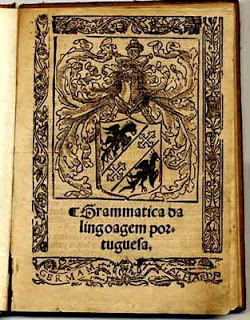 ¶Grammatica da
lingoagem por⸗
tuguesa.
GERMAM GALHARDE